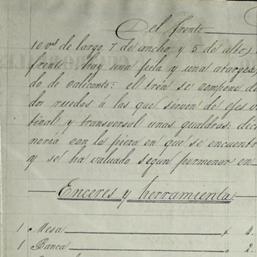 Del frente
10 vs. de largo, 7 de ancho y 5 de alto;
frente hay una pila y una atargea
do de calicanto: el tren se compone de
dos ruedos á las que sirven de ejes
tical y transversal unas gualdras; dic
noria con la pieza en que se encuentr
y se ha valuado segun pormenor en
Enceres y herramienta.
1 Mesa
1 Banca